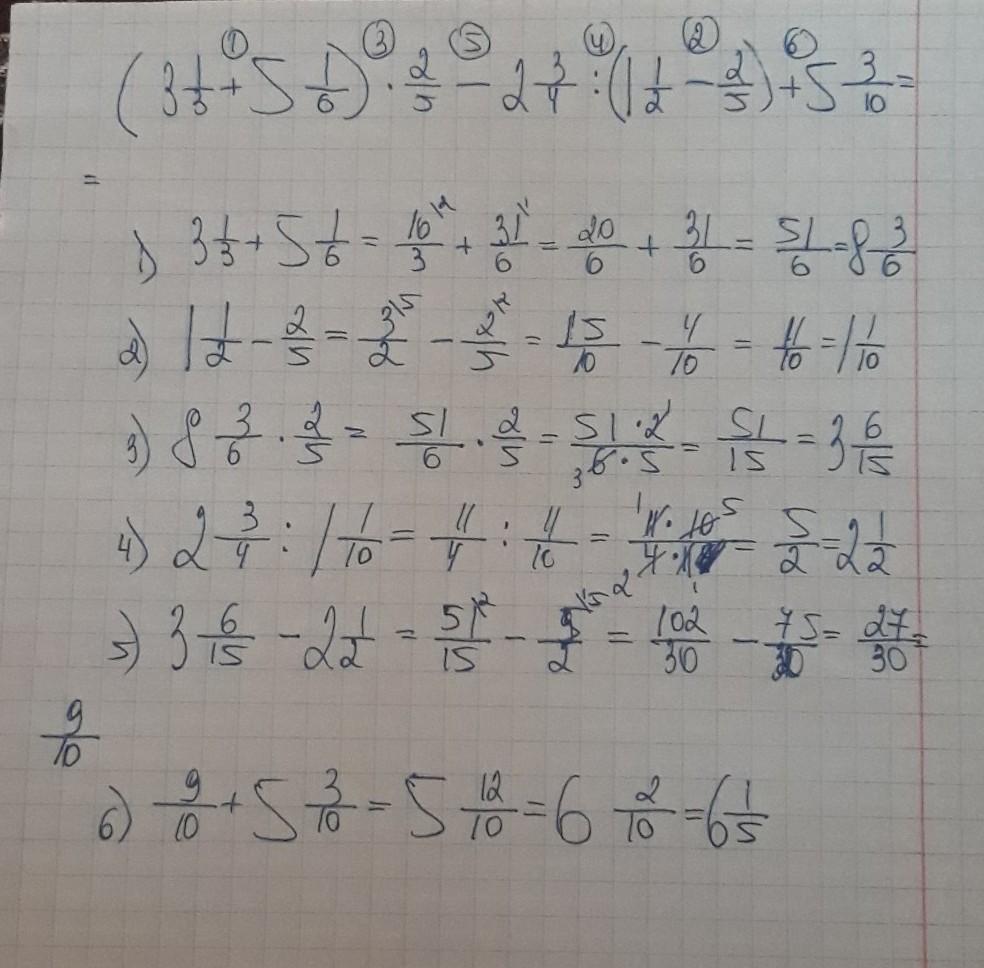 ① ③ ⑤ ④ ② ⑥
(3 1/3 + 5 1/6) · 2/5 − 2 3/4 : (1 1/2 − 2/5) + 5 3/10 =
=
1) 3 1/3 + 5 1/6 = 10\2/3 + 31\1/6 = 20/6 + 31/6 = 51/6 = 8 3/6
2) 1 1/2 − 2/5 = 3\5/2 − 2\2/5 = 15/10 − 4/10 = 11/10 = 1 1/10
3) 8 3/6 · 2/5 = 51/6 · 2/5 = 51 · 2 1/3 6 · 5 = 51/15 = 3 6/15
4) 2 3/4 : 1 1/10 = 11/4 : 11/10 = 1 11 · 10 5/4 · 11 = 5/2 = 2 1/2
2 1
5) 3 6/15 − 2 1/2 = 51\2/15 − 5\15/2 = 102/30 − 75/30 = 27/30 =
9/10
6) 9/10 + 5 3/10 = 5 12/10 = 6 2/10 = 6 1/5